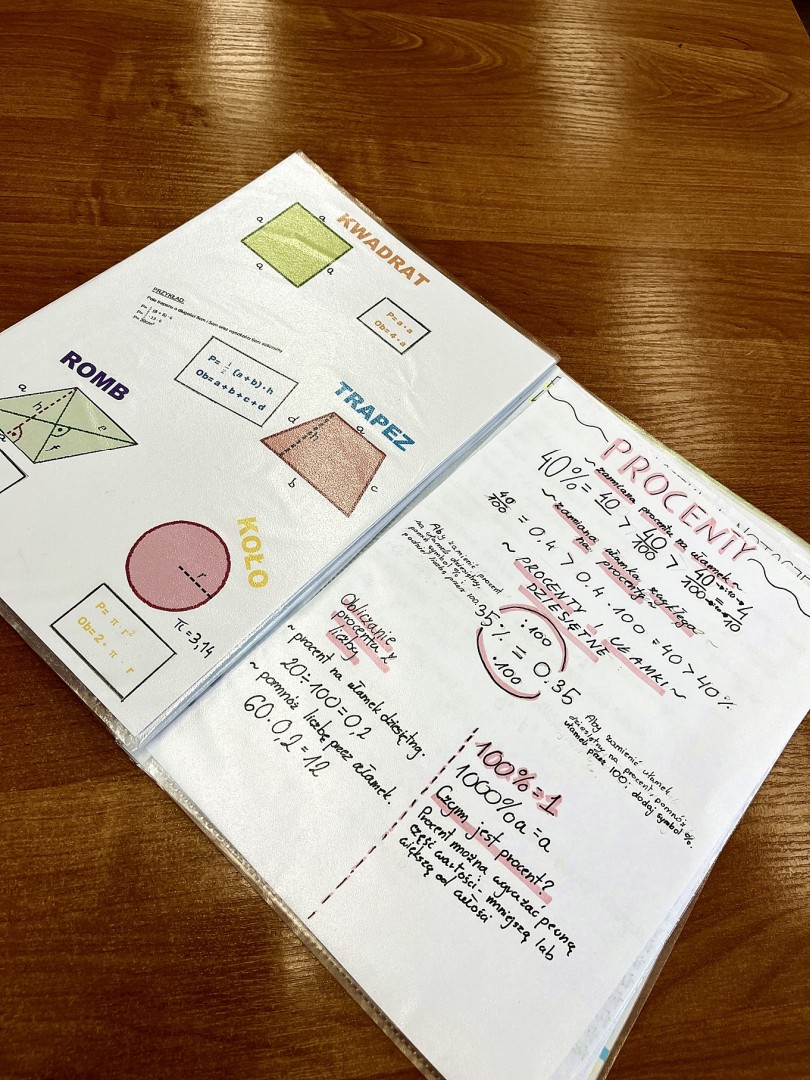 KWADRAT
a
a
a
a
P= a · a
Ob= 4 · a
PRZYKŁAD
P= 1/2 (a+b) · h
Ob=a+b+c+d
TRAPEZ
d
a
h
b
c
ROMB
a
h
e
f
KOŁO
r
π=3,14
P= π · r²
Ob= 2 · π · r
PROCENTY
~ zamiana procentu na ułamek ~
40% = 40 > 40/100 > 40:10/100:10 = 4/10
~ zamiana ułamka zwykłego na procenty ~
40/100 = 0.4 > 0.4 . 100 = 40 > 40%
~ PROCENTY I UŁAMKI ~
DZIESIĘTNE
Aby zamienić procent
na ułamek dziesiętny,
35% = 0.35
:100
.100
Aby zamienić ułamek
dziesiętny na procent, pomnóż
ułamek przez 100 i dodaj symbol %.
Obliczanie
procentu z
liczby
~ procent na ułamek dziesiętny.
20÷100=0,2
~ pomnóż liczbę przez ułamek.
60.0,2=12
100%=1
1000% a =a
Czym jest procent?
Procent można wyrażać pewną
część wartości - mniejszą lub
większą od całości